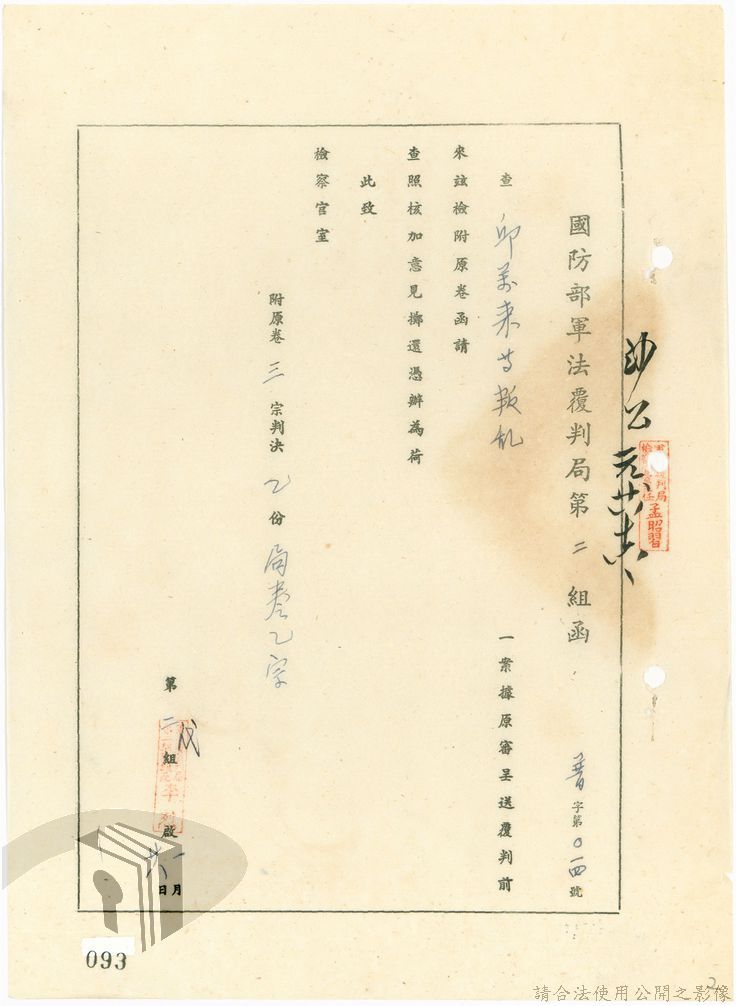 國防部軍法覆判局第二組函
普字第〇一四號
查邱萬來等叛乱一案據原審呈送覆判前
來茲檢附原卷函請
查照核加意見擲還憑辦為荷
此致
檢察官室
附原卷三宗判決乙份局卷乙宗
第二組
啟
一月
日
孟昭習
093
2
請合法使用公開之影像